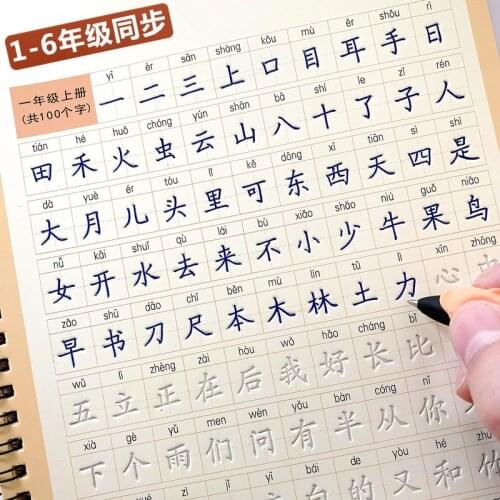 1-6年级同步
一年级上册
(共100个字)
yī èr sān shàng kǒu mù ěr shǒu rì
一 二 三 上 口 目 耳 手 日
tián hé huǒ chóng yún shān bā shí le zǐ rén
田 禾 火 虫 云 山 八 十 了 子 人
dà yuè ér tóu lǐ kě dōng xī tiān sì shì
大 月 儿 头 里 可 东 西 天 四 是
nǚ kāi shuǐ qù lái bù xiǎo shǎo niú guǒ niǎo
女 开 水 去 来 不 小 少 牛 果 鸟
zǎo shū dāo chǐ běn mù lín tǔ lì xīn zhōng
早 书 刀 尺 本 木 林 土 力 心
wǔ lì zhèng zài hòu wǒ hǎo cháng bǐ
五 立 正 在 后 我 好 长 比
xià gè yǔ men wèn yǒu bàn cóng nǐ
下 个 雨 们 问 有 半 从 你
bái de yòu hé
白 的 又 和